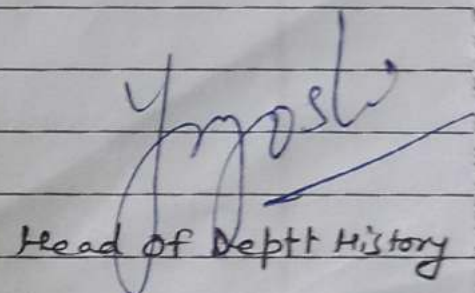 YJoshi
Head of Deptt History